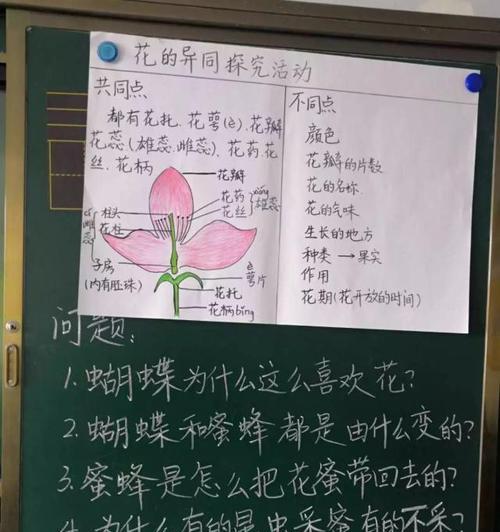 花的异同探究活动
共同点
都有花托、花萼(è)、花瓣
花蕊(雄蕊、雌蕊)、花药、花
丝、花柄
花瓣
花药
花丝
xióng
雄蕊
cí
雌蕊
柱头
花柱
子房
(内有胚珠)
è
萼片
花托
花柄bǐng
不同点
颜色
花瓣的片数
花的名称
花的气味
生长的地方
种类→果实
作用
花期(花开放的时间)
问题:
1.蝴蝶为什么这么喜欢花?
2.蝴蝶和蜜蜂都是由什么变的?
3.蜜蜂是怎么把花蜜带回去的?
4.为什么有的昆虫采蜜有的不采